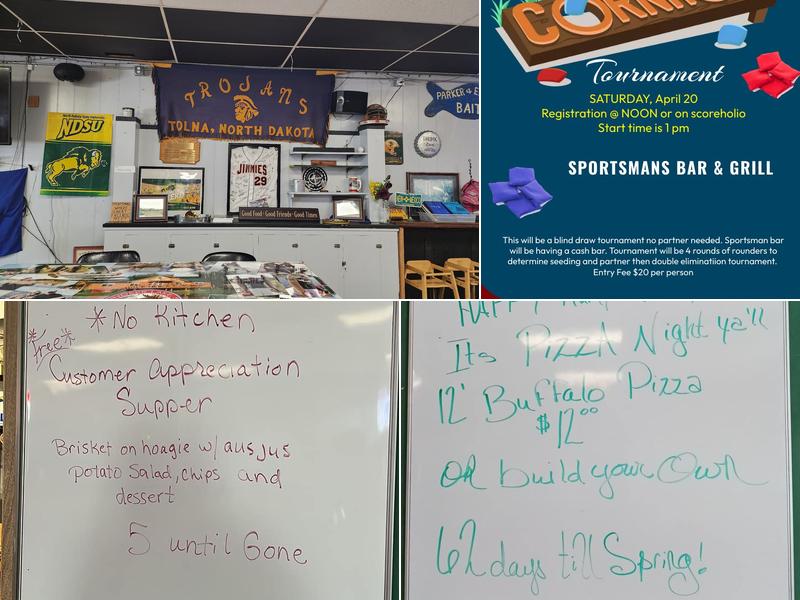 TROJANS
TOLNA, NORTH DAKOTA
PARKER & E
BAIT
NDSU
JINNIES
29
Good Food · Good Friends · Good Times
CORNHO
Tournament
SATURDAY, April 20
Registration @ NOON or on scoreholio
Start time is 1 pm
SPORTSMANS BAR & GRILL
This will be a blind draw tournament no partner needed. Sportsman bar
will be having a cash bar. Tournament will be 4 rounds of rounders to
determine seeding and partner then double elimination tournament.
Entry Fee $20 per person
*No Kitchen
*free*
Customer Appreciation
Supper
Brisket on hoagie w/ aus jus
potato Salad, chips and
dessert
5 until Gone
HAPPY
Its PIZZA Night ya'll
12' Buffalo Pizza
$12.00
OR build your Own
62 days till Spring!